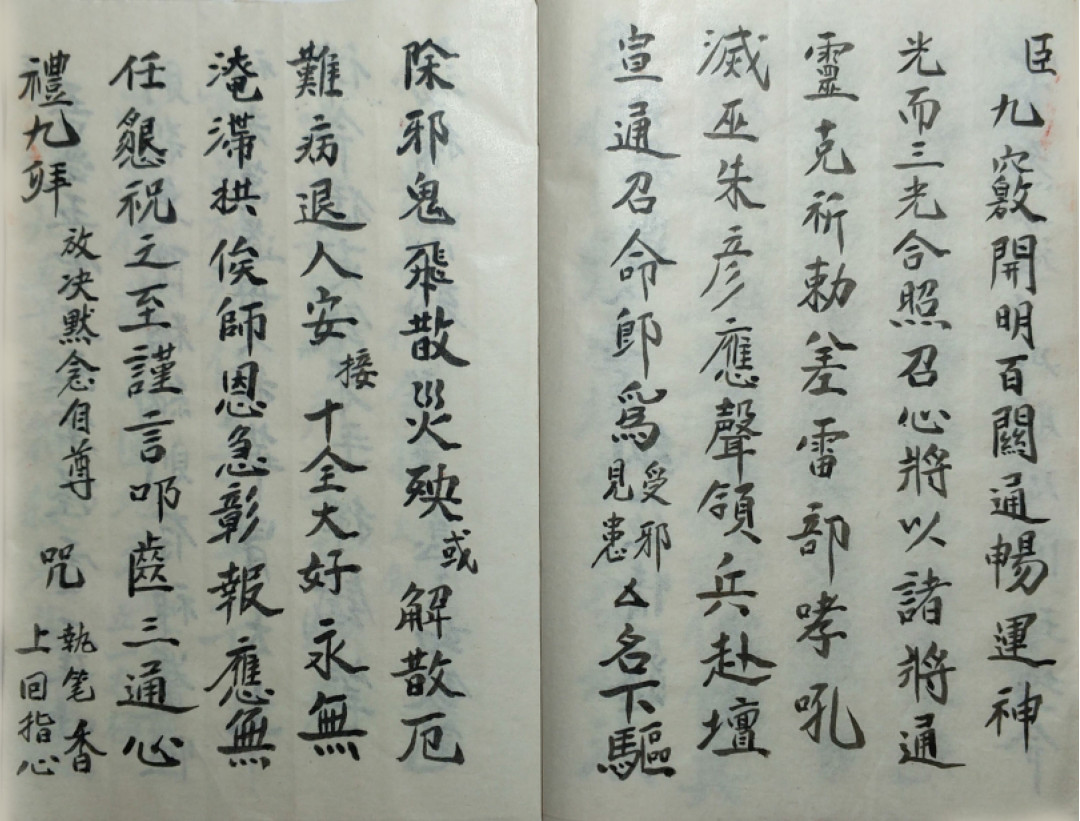 臣九竅開明百關通暢運神
光而三光合照召心將以諸將通
靈克祈勅差雷部哮吼
滅巫朱彦應聲領兵赴壇
宣通召命即爲受邪見患厶名下驅
除邪鬼飛散災殃或解散厄
難病退人安接十全大好永無
淹滯拱俟師恩急彰報應無
任懇祝之至謹言叩齒三通心
禮九拜放决默念自尊咒執笔香上回指心